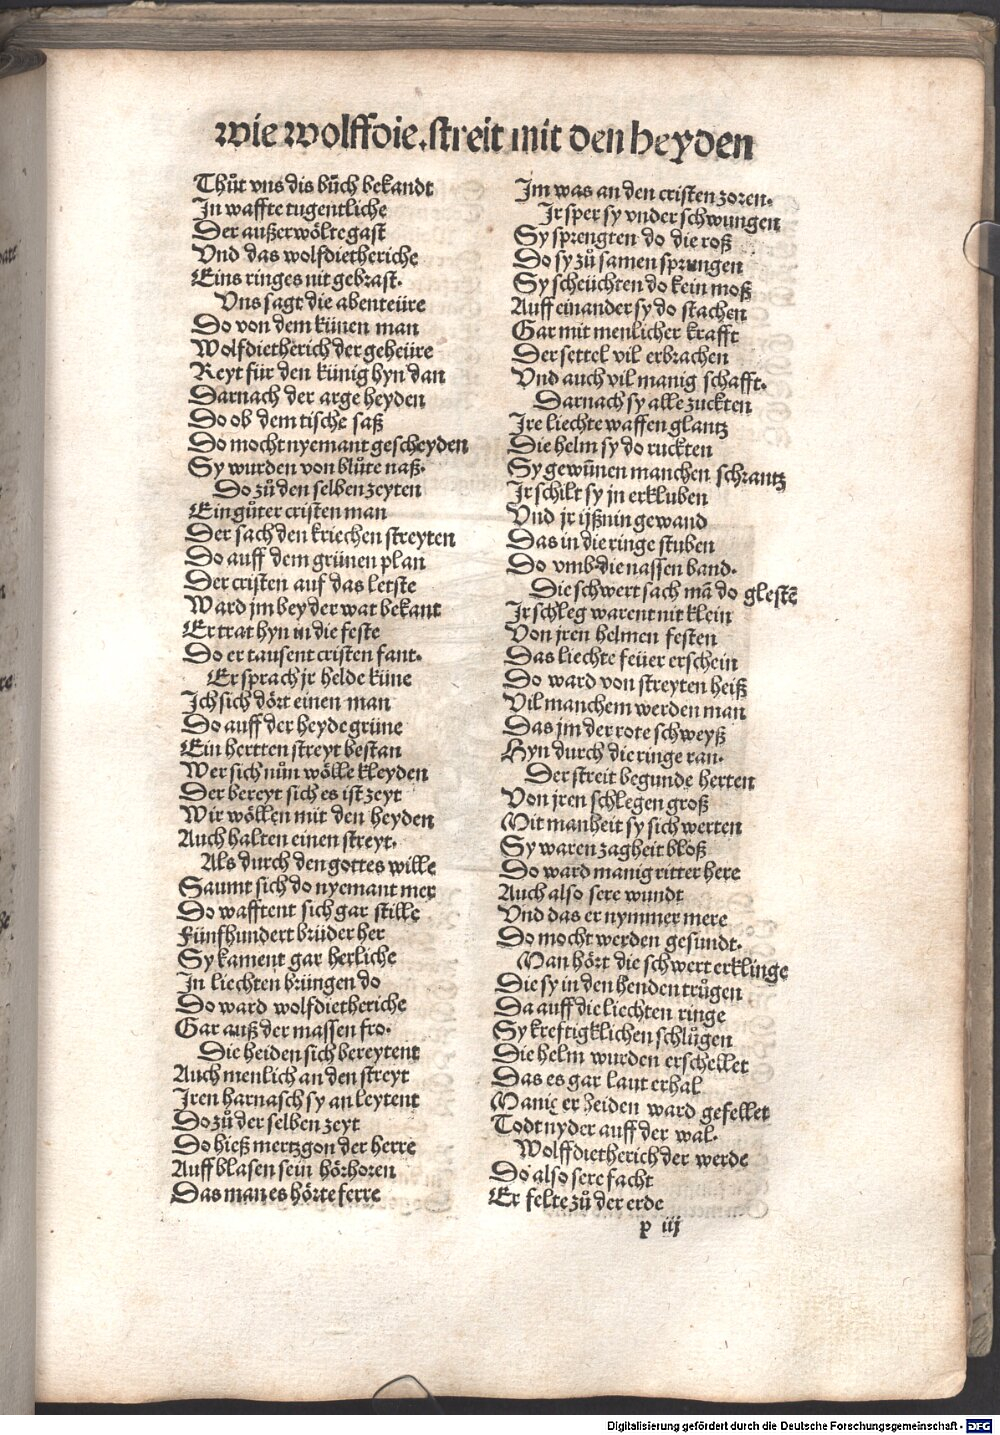 wie wolffdie. streit mit den heyden
Thůt vns dis bůch bekandt
In waffte tugentliche
Der außerwölte gast
Vnd das wolfdietheriche
Eins ringes nit gebrast.
Vns sagt die abenteüre
Do von dem künen man
Wolfdietherich der geheüre
Reyt für den künig hyn dan
Darnach der arge heyden
Do ob dem tische saß
Do mocht nyemant gescheyden
Sy wurden von blůte naß.
Do zů den selben zeyten
Ein gůter cristen man
Der sach den kriechen streyten
Do auff dem grünen plan
Der cristen auf das letste
Ward jm bey der wat bekant
Er trat hyn in die feste
Do er tausent cristen fant.
Er sprach jr helde küne
Ich sich dört einen man
Do auff der heyde grüne
Ein hertten streyt bestan
Wer sich nůn wölle kleyden
Der bereyt sich es ist zeyt
Wir wöllen mit den heyden
Auch halten einen streyt.
Als durch den gottes wille
Saumt sich do nyemant mer
Do wafftent sich gar stille
Fünfhundert brüder her
Sy kament gar herliche
In liechten brüngen do
Do ward wolfdietheriche
Gar auß der massen fro.
Die heiden sich bereytent
Auch menlich an den streyt
Iren harnasch sy an leytent
Do zů der selben zeyt
Do hieß mertzgon der herre
Auff blasen sein hörhoren
Das man es hörte ferre
Im was an den cristen zoren.
Ir sper sy vnder schwungen
Sy sprengten do die roß
Do sy zů samen sprungen
Sy scheüchten do kein moß
Auff einander sy do stachen
Gar mit menlicher krafft
Der settel vil erbrachen
Vnd auch vil manig schafft.
Darnach sy alle zuckten
Ire liechte waffen glantz
Die helm sy do ruckten
Sy gewūnen manchen schrantz
Ir schilt sy jn erkluben
Vnd jr ijßnin gewand
Das in die ringe stuben
Do vmb die nassen band.
Die schwert sach mā do glestē
Ir schleg warent nit klein
Von jren helmen festen
Das liechte feüer erschein
Do ward von streyten heiß
Vil manchem werden man
Das jm der rote schweyß
Hyn durch die ringe ran.
Der streit begunde herten
Von jren schlegen groß
Mit manheit sy sich werten
Sy waren zagheit bloß
Do ward manig ritter here
Auch also sere wundt
Vnd das er nymmer mere
Do mocht werden gesundt.
Man hört die schwert erklinge
Die sy in den henden trůgen
Da auff die liechten ringe
Sy kreftigklichen schlůgen
Die helm wurden erschellet
Das es gar laut erhal
Manig er heiden ward gefellet
Todt nyder auff der wal.
Wolffdietherich der werde
Do also sere facht
Er felte zů der erde
p iij
Digitalisierung gefördert durch die Deutsche Forschungsgemeinschaft - DFG